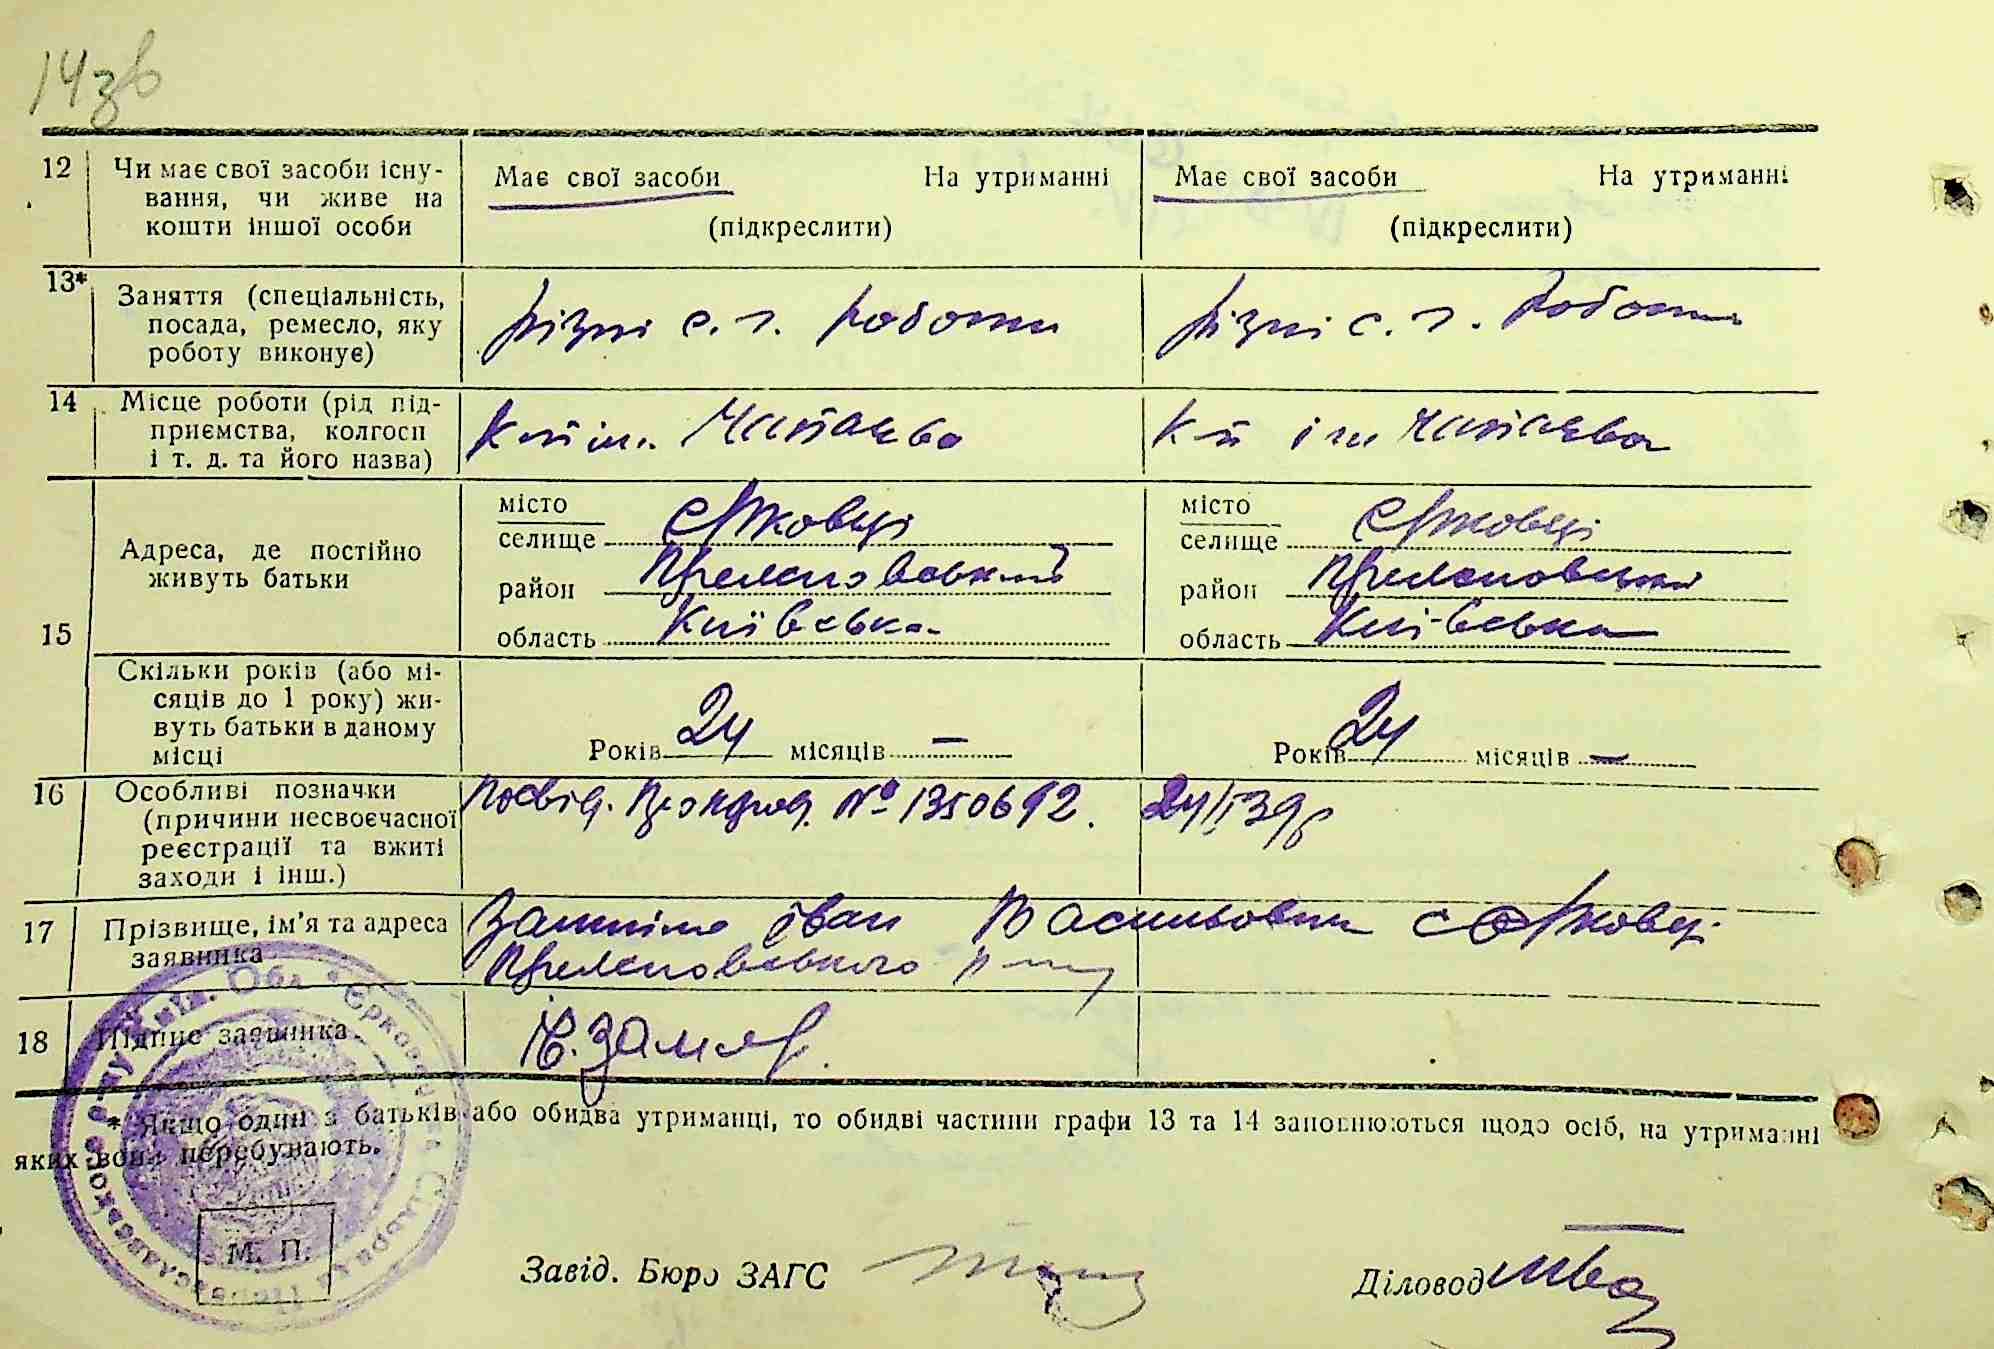 14зв
12 Чи має свої засоби існу-
вання, чи живе на
кошти іншої особи
Має свої засоби На утриманні
(підкреслити)
Має свої засоби На утриманні
(підкреслити)
13* Заняття (спеціальність,
посада, ремесло, яку
роботу виконує)
різні с. г. роботи
різні с. г. роботи
14 Місце роботи (рід під-
приємства, колгосп
і т. д. та його назва)
К-п ім. Чапаєва
К-п ім Чапаєва
15 Адреса, де постійно
живуть батьки
місто
селище Єрковці
район
область Київська
місто
селище Єрковці
район
область Київська
Скільки років (або мі-
сяців до 1 року) жи-
вуть батьки в даному
місці
Років 24 місяців —
Років 24 місяців —
16 Особливі позначки
(причини несвоєчасної
реєстрації та вжиті
заходи і інш.)
Посвід. № 1350692.
17 Прізвище, ім'я та адреса
заявника
Іван Васильович с Єрковці
18 Підпис заявника
* Якщо один з батьків або обидва утриманці, то обидві частини графи 13 та 14 заповнюються щодо осіб, на утриманні
яких вони перебувають.
М. П.
Завід. Бюро ЗАГС
Діловод